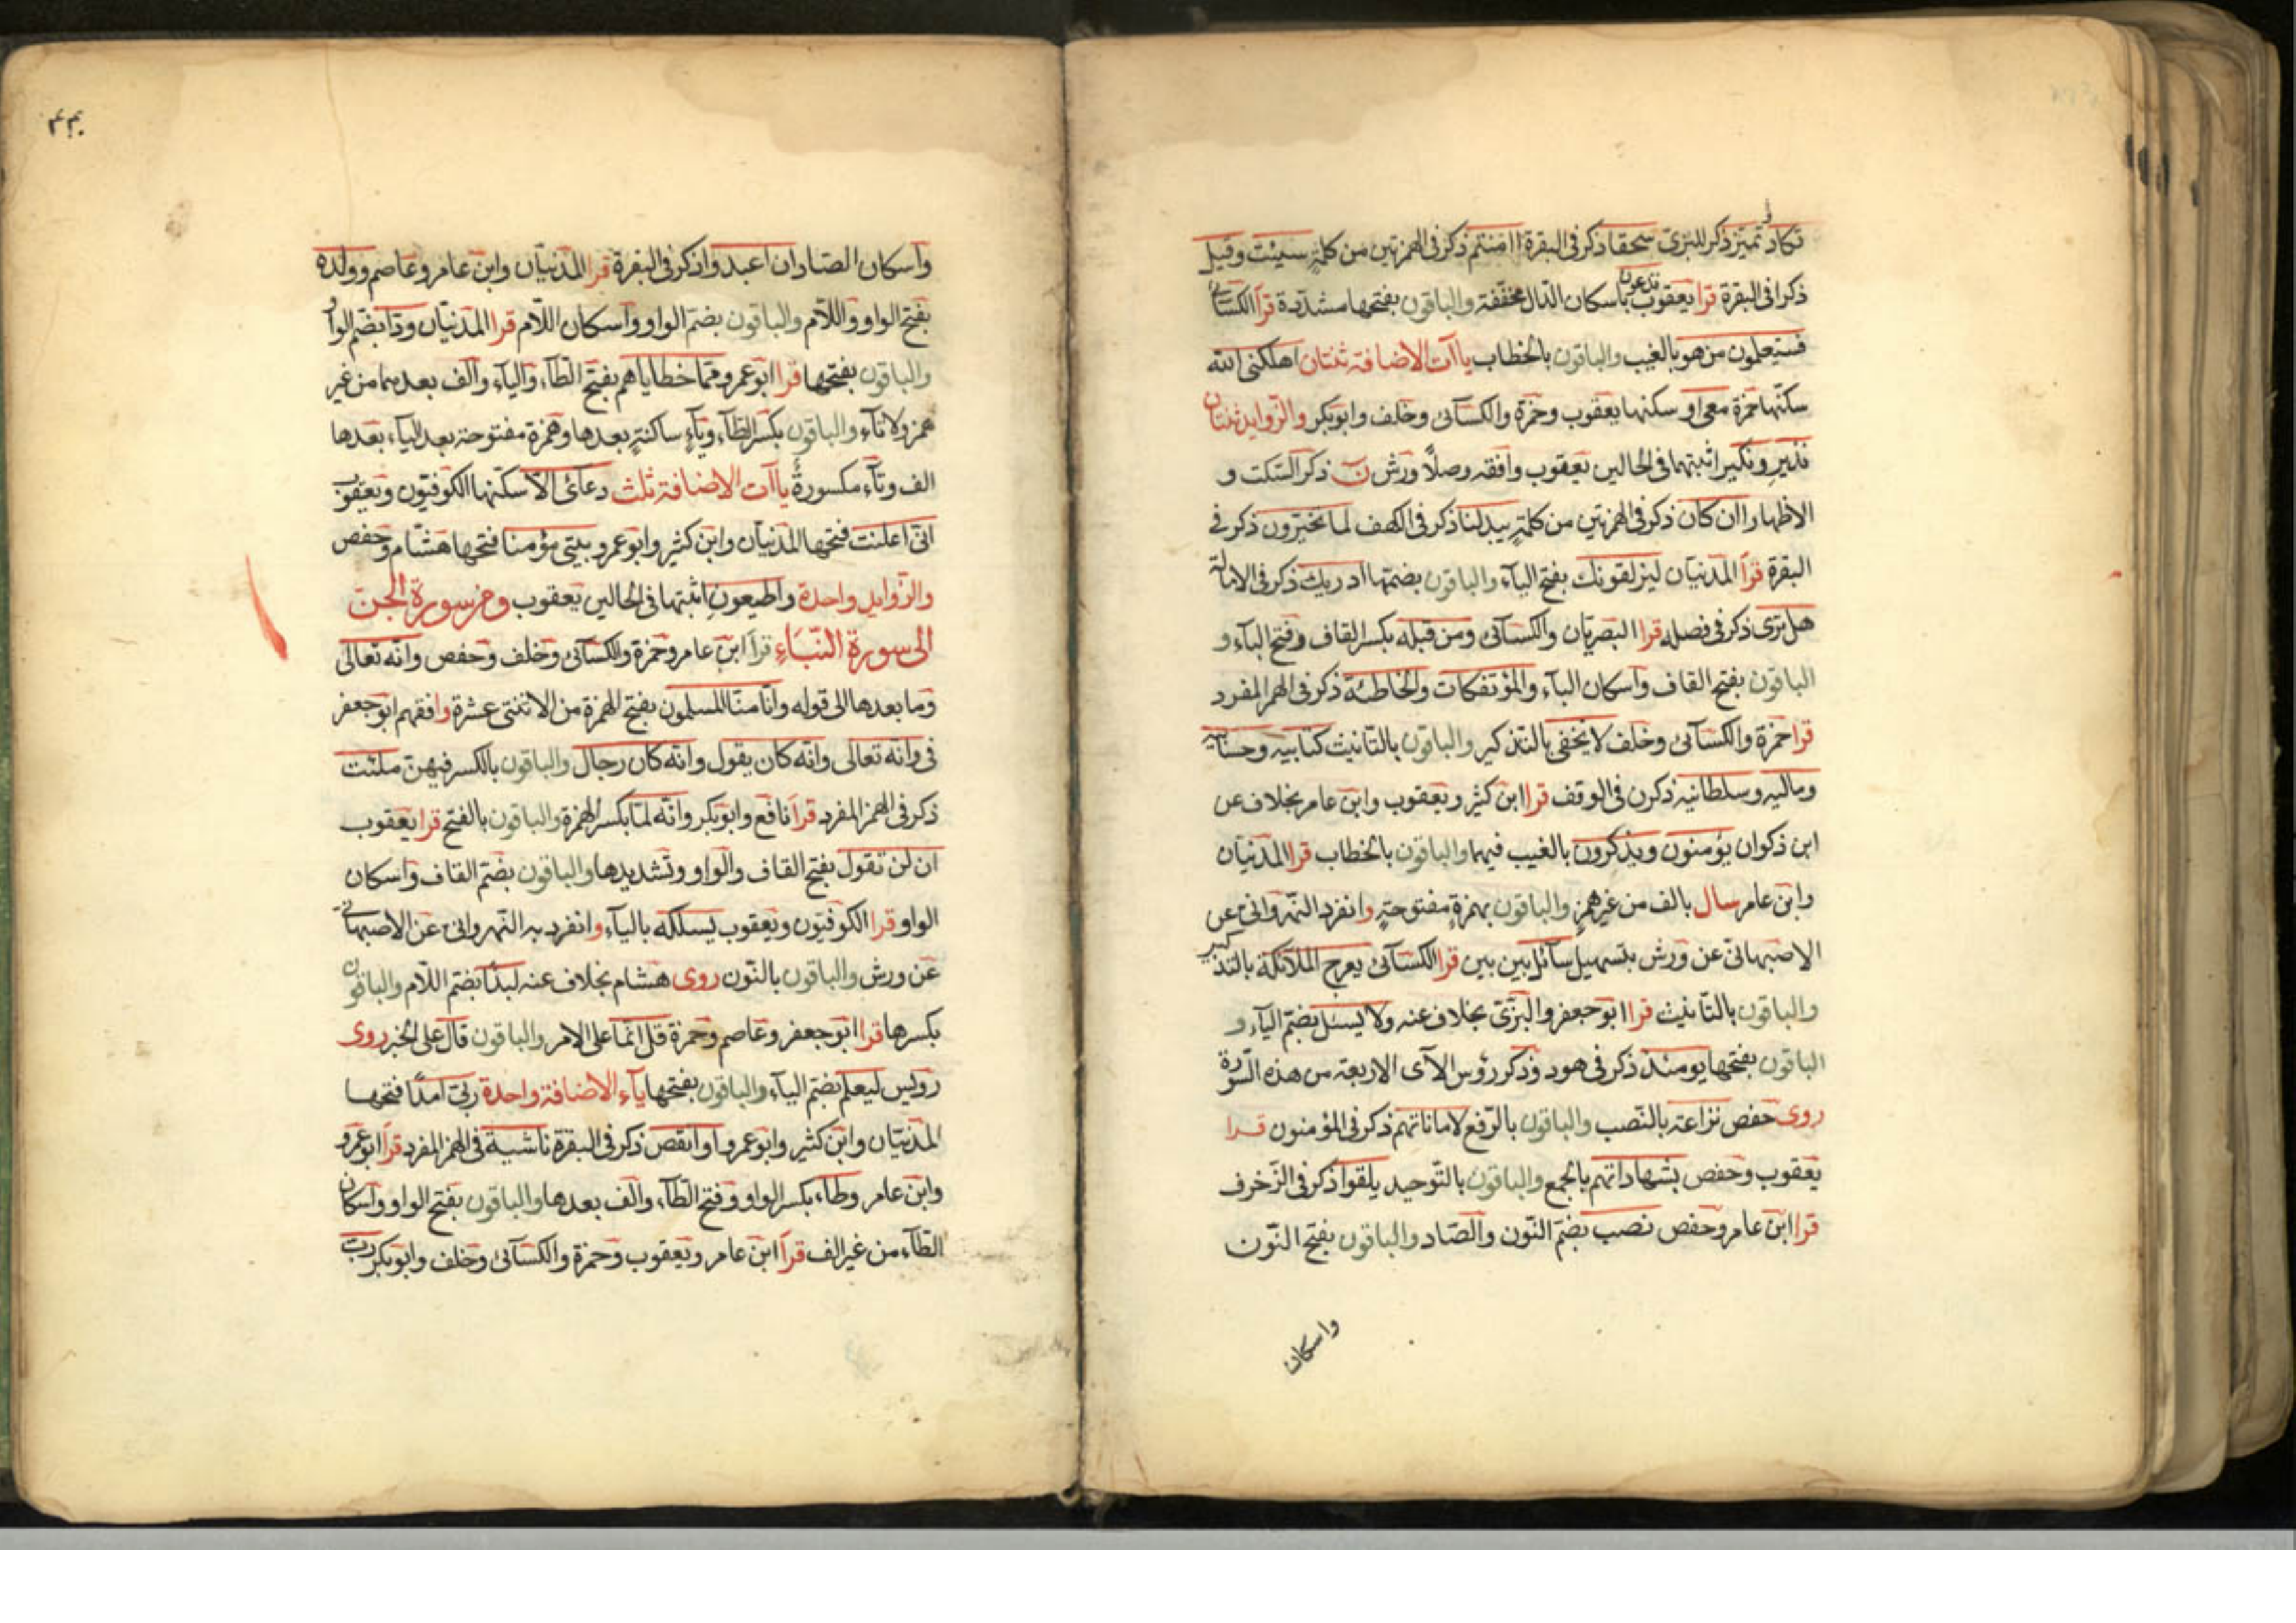 تكاد تميز ذكر للبزى سحقا ذكر فى البقرة اامنتم ذكر فى الهمزتين من كلمة سيئت وقيل
ذكرا فى البقرة قرا يعقوب تدعون باسكان الدال مخففة والباقون بفتحها مشددة قرا الكسائى
فستعلمون من هو بالغيب والباقون بالخطاب ياآت الاضافة ثنتان اهلكنى الله
سكنها حمزة معى او سكنها يعقوب وحمزة والكسائى وخلف وابوبكر والزوايد ثنتان
نذير ونكير اثبتهما فى الحالين يعقوب وافقه وصلاً ورش ن ذكر السكت و
الاظهار اان كان ذكر فى الهمزتين من كلمة يبدلنا ذكر فى الكهف لما تخيرون ذكر فى
البقرة قرأ المدنيان ليزلقونك بفتح الياء والباقون بضمها ادريك ذكر فى الامالة
هل ترى ذكر فى فصله قرا البصريان والكسائى ومن قبله بكسر القاف وفتح الباء و
الباقون بفتح القاف واسكان الباء والمؤتفكات والخاطئة ذكر فى الهمز المفرد
قرا حمزة والكسائى وخلف لا يخفى بالتذكير والباقون بالتانيث كتابيه وحسابيه
وماليه وسلطانيه ذكرن فى الوقف قرا ابن كثير ويعقوب وابن عامر بخلاف عن
ابن ذكوان يؤمنون ويذكرون بالغيب فيهما والباقون بالخطاب قرا المدنيان
وابن عامر سال بالف من غير همز والباقون بهمزة مفتوحة وانفرد النهروانى عن
الاصبهانى عن ورش بتسهيل سائل بين بين قرا الكسائى يعرج الملائكة بالتذكير
والباقون بالتانيث قرا ابو جعفر والبزى بخلاف عنه ولا يسئل بضم الياء و
الباقون بفتحها يومئذ ذكر فى هود وذكر رؤس الآى الاربعة من هذه السورة
روى حفص نزاعة بالنصب والباقون بالرفع لاماناتهم ذكر فى المؤمنون قرا
يعقوب وحفص بشهاداتهم بالجمع والباقون بالتوحيد يلقوا ذكر فى الزخرف
قرا ابن عامر وحفص نصب بضم النون والصاد والباقون بفتح النون
واسكان
٤٤٠
واسكان الصاد ان اعبدوا ذكر فى البقرة قرا المدنيان وابن عامر وعاصم وولده
بفتح الواو واللام والباقون بضم الواو واسكان اللام قرا المدنيان ودا بضم الواو
والباقون بفتحها قرا ابو عمرو مما خطاياهم بفتح الطاء والياء والف بعدهما من غير
همز ولا تاء والباقون بكسر الطاء وياء ساكنة بعدها وهمزة مفتوحة بعد الياء بعدها
الف وتاء مكسورة ياآت الاضافة ثلث دعائى الا سكنها الكوفيون ويعقوب
انى اعلنت فتحها المدنيان وابن كثير وابو عمرو بيتى مؤمنا فتحها هشام وحفص
والزوايد واحدة واطيعون اثبتها فى الحالين يعقوب ومن سورة الجن
الى سورة النباء قرأ ابن عامر وحمزة والكسائى وخلف وحفص وانه تعالى
وما بعدها الى قوله وانا منا المسلمون بفتح الهمزة من الاثنتى عشرة وافقهم ابو جعفر
فى وانه تعالى وانه كان يقول وانه كان رجال والباقون بالكسر فيهن ملئت
ذكر فى الهمز المفرد قرأ نافع وابوبكر وانه لما بكسر الهمزة والباقون بالفتح قرا يعقوب
ان لن تقول بفتح القاف والواو وتشديدها والباقون بضم القاف واسكان
الواو قرا الكوفيون ويعقوب يسلكه بالياء وانفرد به النهروانى عن الاصبهانى
عن ورش والباقون بالنون روى هشام بخلاف عنه لبدًا بضم اللام والباقون
بكسرها قرا ابو جعفر وعاصم وحمزة قل انما على الامر والباقون قال على الخبر روى
رويس ليعلم بضم الياء والباقون بفتحها ياء الاضافة واحدة ربى امدًا فتحها
المدنيان وابن كثير وابو عمرو او انقص ذكر فى البقرة ناشية فى الهمز المفرد قرأ ابو عمرو
وابن عامر وطاء بكسر الواو وفتح الطاء والف بعدها والباقون بفتح الواو واسكان
الطاء من غير الف قرأ ابن عامر ويعقوب وحمزة والكسائى وخلف وابوبكر رب